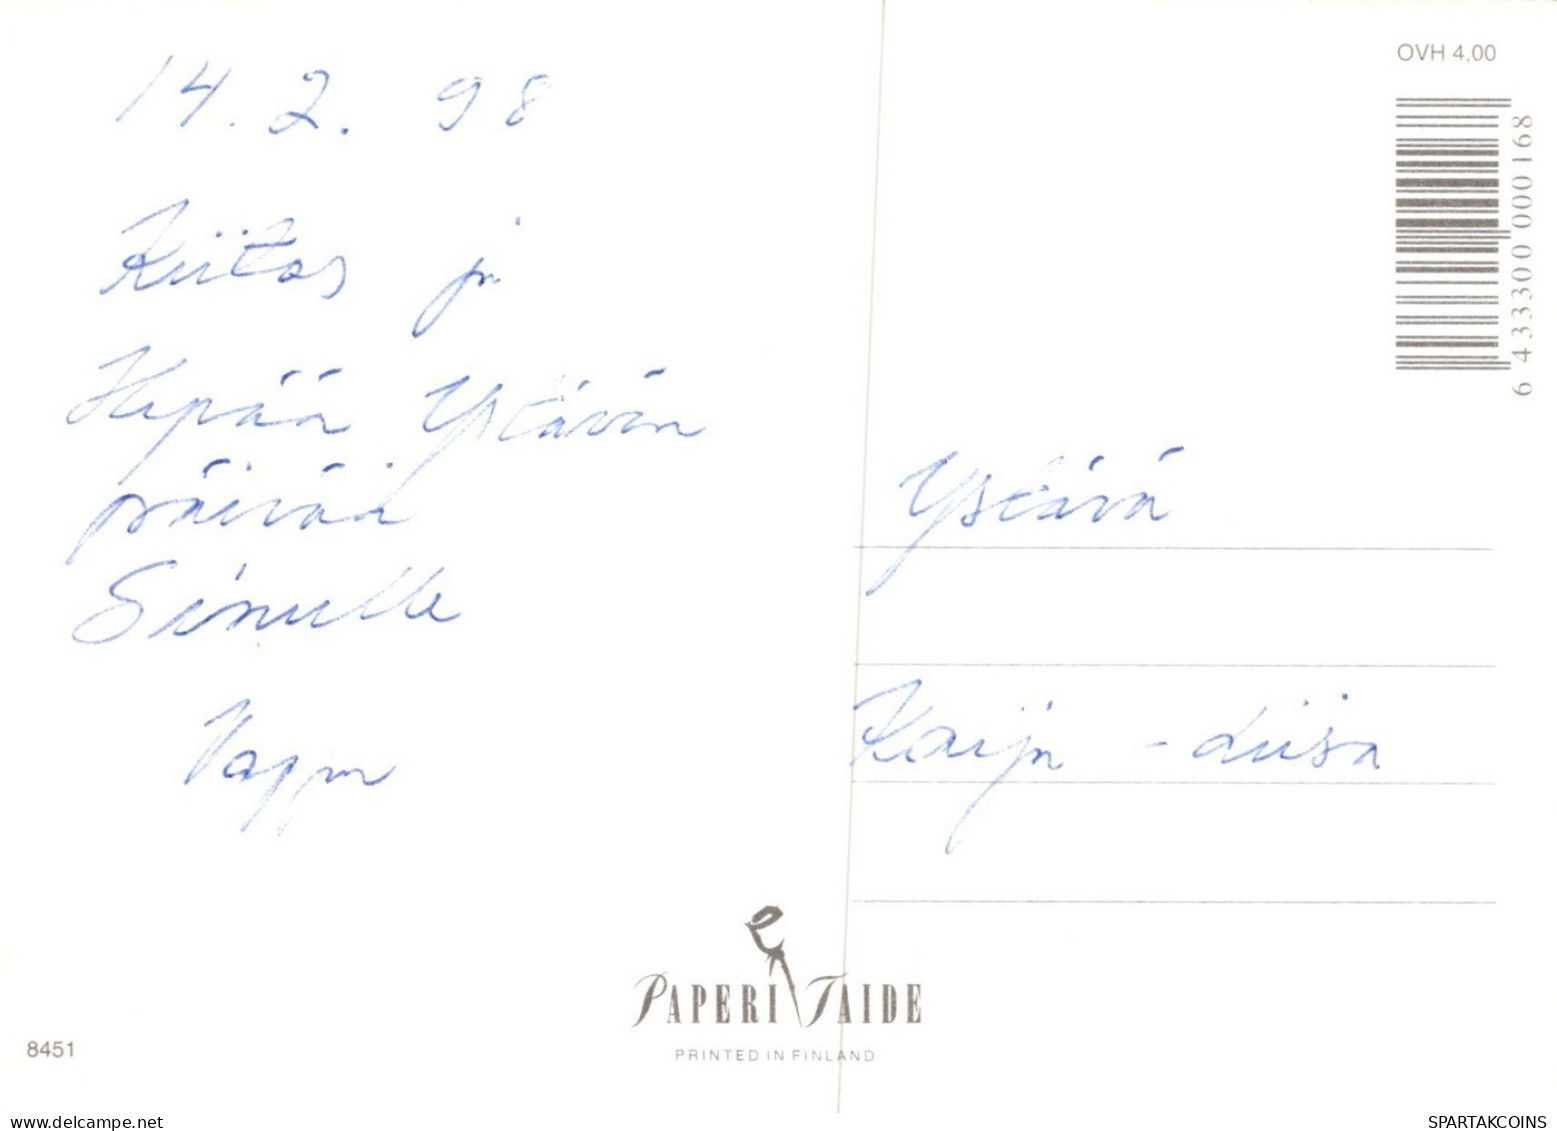 14.2.98
Kiitos ja
Hyvää Ystävän
päivää
Sinulle
Vappu
OVH 4,00
6 433300 000168
Ystävä
Kaija - Liisa
PAPERI TAIDE
PRINTED IN FINLAND
8451
www.delcampe.net
SPARTAKCOINS